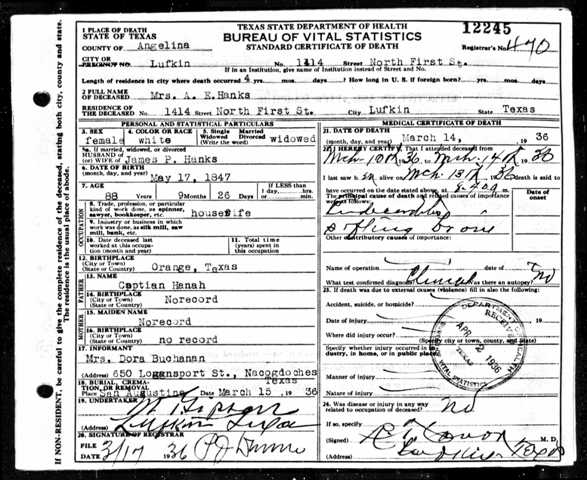 TEXAS STATE DEPARTMENT OF HEALTH
BUREAU OF VITAL STATISTICS
STANDARD CERTIFICATE OF DEATH
12245
Registrar's No. 470
1 PLACE OF DEATH
STATE OF TEXAS
COUNTY OF Angelina
CITY OR
PRECINCT NO. Lufkin No. 1414 Street North First St.
If in an Institution, give name of Institution instead of Street and No.
Length of residence in city where death occurred 4 yrs. mos. days? How long in U. S. if foreign born? yrs. mos. days
2 FULL NAME OF DECEASED Mrs. A. E.Hanks
RESIDENCE OF THE DECEASED No. 1414 Street North First St. City Lufkin State Texas
PERSONAL AND STATISTICAL PARTICULARS
3. SEX female
4. COLOR OR RACE white
5. Single Married Widowed Divorced (Write the word) widowed
6a. If married, widowed, or divorced
HUSBAND OF
(or) WIFE OF James P. Hanks
6. DATE OF BIRTH
(month, day, and year) May 17, 1847
7. AGE 88 Years 9 Months 26 Days If LESS than 1 day, hrs. min.
OCCUPATION
8. Trade, profession, or particular
kind of work done, as spinner,
sawyer, bookkeeper, etc. housefife
9. Industry or business in which
work was done, as silk mill, saw
mill, bank, etc.
10. Date deceased last
worked at this occupation
(month and year)
11. Total time
(years) spent
in this occupation
12. BIRTHPLACE
(City or Town)
(State or Country) Orange, Texas
FATHER
13. NAME Cmptian Hanah
14. BIRTHPLACE
(City or Town)
(State or Country) Norecord
MOTHER
15. MAIDEN NAME Norecord
16. BIRTHPLACE
(City or Town)
(State or Country) no record
17. INFORMANT
Mrs. Dora Buchanan
(Address) 650 Logansport St., Nacogdoches
Texas
18. BURIAL, CREMATION, OR REMOVAL
Place San Augustine Date March 15, 1936
19. UNDERTAKER
Lufkin Texas
20. SIGNATURE OF REGISTRAR
FILE DATE 3/17 1936
MEDICAL CERTIFICATE OF DEATH
21. DATE OF DEATH
(month, day, year) March 14, 1936
22. I HEREBY CERTIFY, That I attended deceased
from Mch. 10th 36, to Mch. 14th 36
I last saw h alive on Mch. 13th, 36 death is said to
have occurred on the date stated above, at m.
The principal cause of death and related causes of
importance were as follows:
Date of onset
Other contributory causes of importance:
Name of operation Date of
What test confirmed diagnosis? Clinical Was there an autopsy? No
23. If death was due to external causes (violence) fill in also the following:
Accident, suicide, or homicide?
Date of injury 19
Where did injury occur?
(Specify city or town, county, and State)
Specify whether injury occurred in industry, in home, or in public place
Manner of injury
Nature of injury
24. Was disease or injury in any way
related to occupation of deceased? No
If so, specify
(Signed) M. D.
(Address) Texas
DEPARTMENT OF HEALTH
RECEIVED
APR 2 1936
TEXAS
VITAL STATISTICS
IF NON-RESIDENT, be careful to give the complete residence of the deceased, stating both city, county and state.
The residence is the usual place of abode.